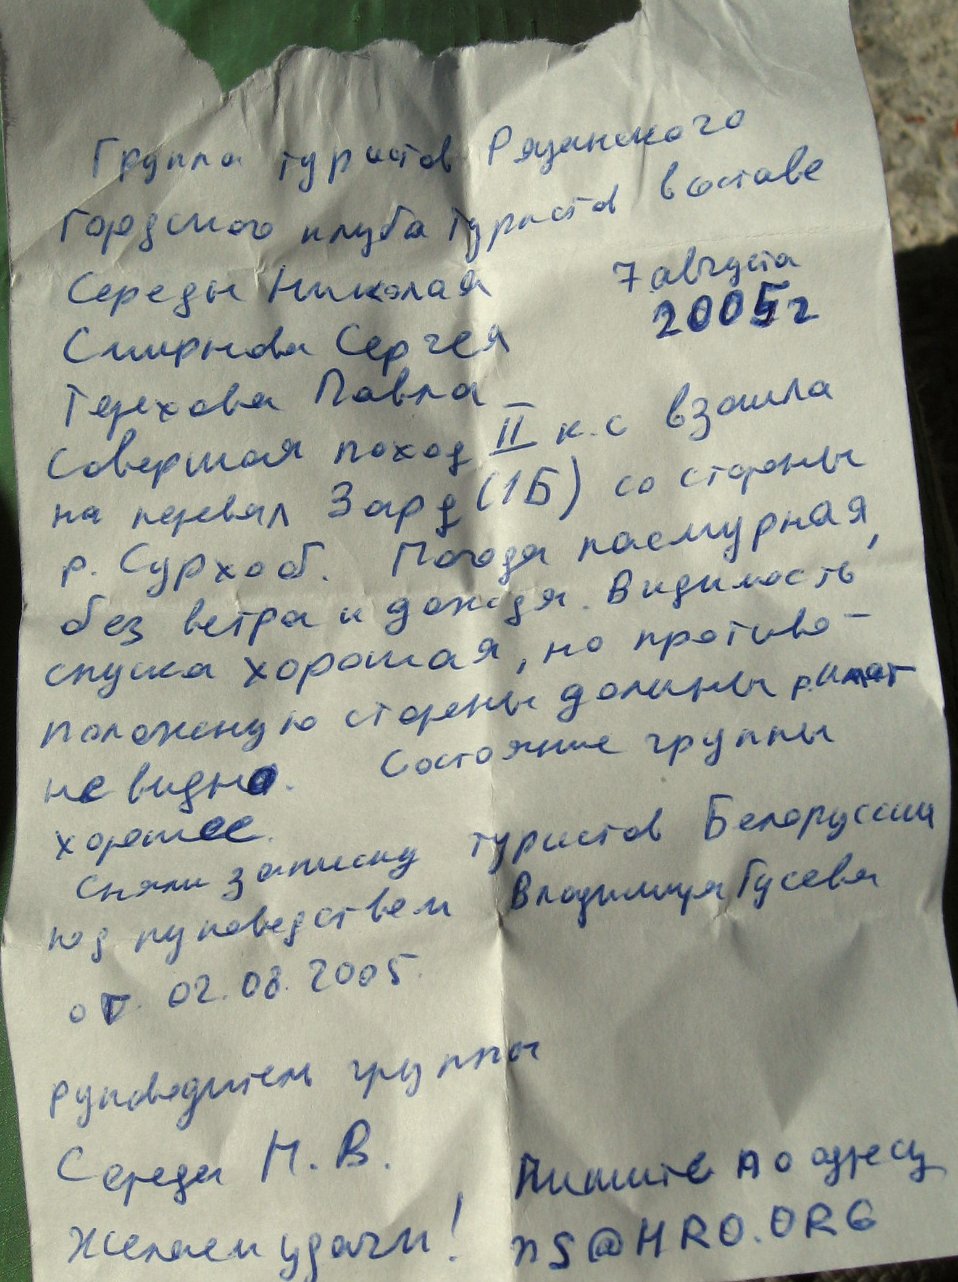 Группа туристов Рязанского
Гордского клуба туристов в составе
Середы Николая 7 августа
Смирнова Сергея 2005 г
Терехова Павла
Совершая поход II к.с взошла
на перевал Зард (1Б) со стороны
р. Сурхоб. Погода пасмурная,
без ветра и дождя. Видимость
спуска хорошая, но противо-
положную стороны долины
не видно. Состояние группы
хорошее.
Сняли записку туристов Белоруссии
под руководством Владимира Гусева
от. 02.08.2005.
Руководитель группы
Середа Н.В.
Пишите по адресу
Желаем удачи! ns@HRO.ORG